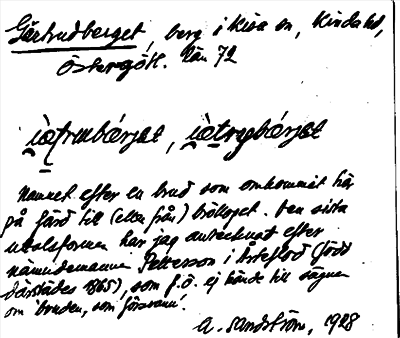 Gertrudberget, berg i Kisa sn, Kinda hd,
Östergötl. län 72
Namnet efter en brud som omkommit här
på färd till (eller från) bröllopet. Den sista
uttalsformen har jag antecknat efter
nämndemannen Pettersson i (född
därstädes 1865), som f.ö. ej kände till sägnen
om bruden, som försvann.
A. Sandström, 1928